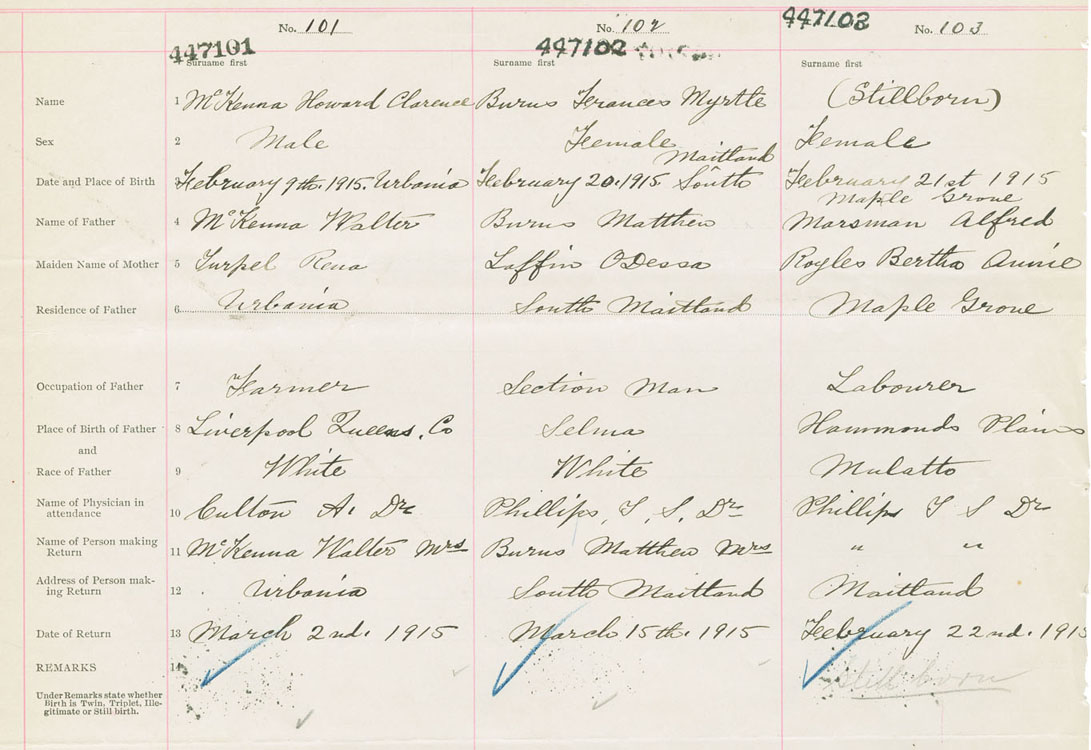 No. 101 No. 102 447103 No. 103
447101 447102
Surname first Surname first Surname first
Name 1 McKenna Howard Clarence Burns Frances Myrtle (Stillborn)
Sex 2 Male Female Female
Maitland
Date and Place of Birth 3 February 9th. 1915. Urbania February 20. 1915. South February 21st 1915
Maple Grove
Name of Father 4 McKenna Walter Burns Matthew Marsman Alfred
Maiden Name of Mother 5 Turpel Rena Laffin ODessa Royles Bertha Annie
Residence of Father 6 Urbania South Maitland Maple Grove
Occupation of Father 7 Farmer Section Man Labourer
Place of Birth of Father 8 Liverpool Queens. Co Selma Hammonds Plains
and
Race of Father 9 White White Mulatto
Name of Physician in
attendance 10 Culton A. Dr Phillips, T. S. Dr Phillips T S Dr
Name of Person making
Return 11 McKenna Walter Mrs Burns Matthew Mrs " "
Address of Person mak-
ing Return 12 Urbania South Maitland Maitland
Date of Return 13 March 2nd. 1915 March 15th. 1915 February 22nd. 1915
REMARKS 14 Still born
Under Remarks state whether
Birth is Twin, Triplet, Ille-
gitimate or Still birth.